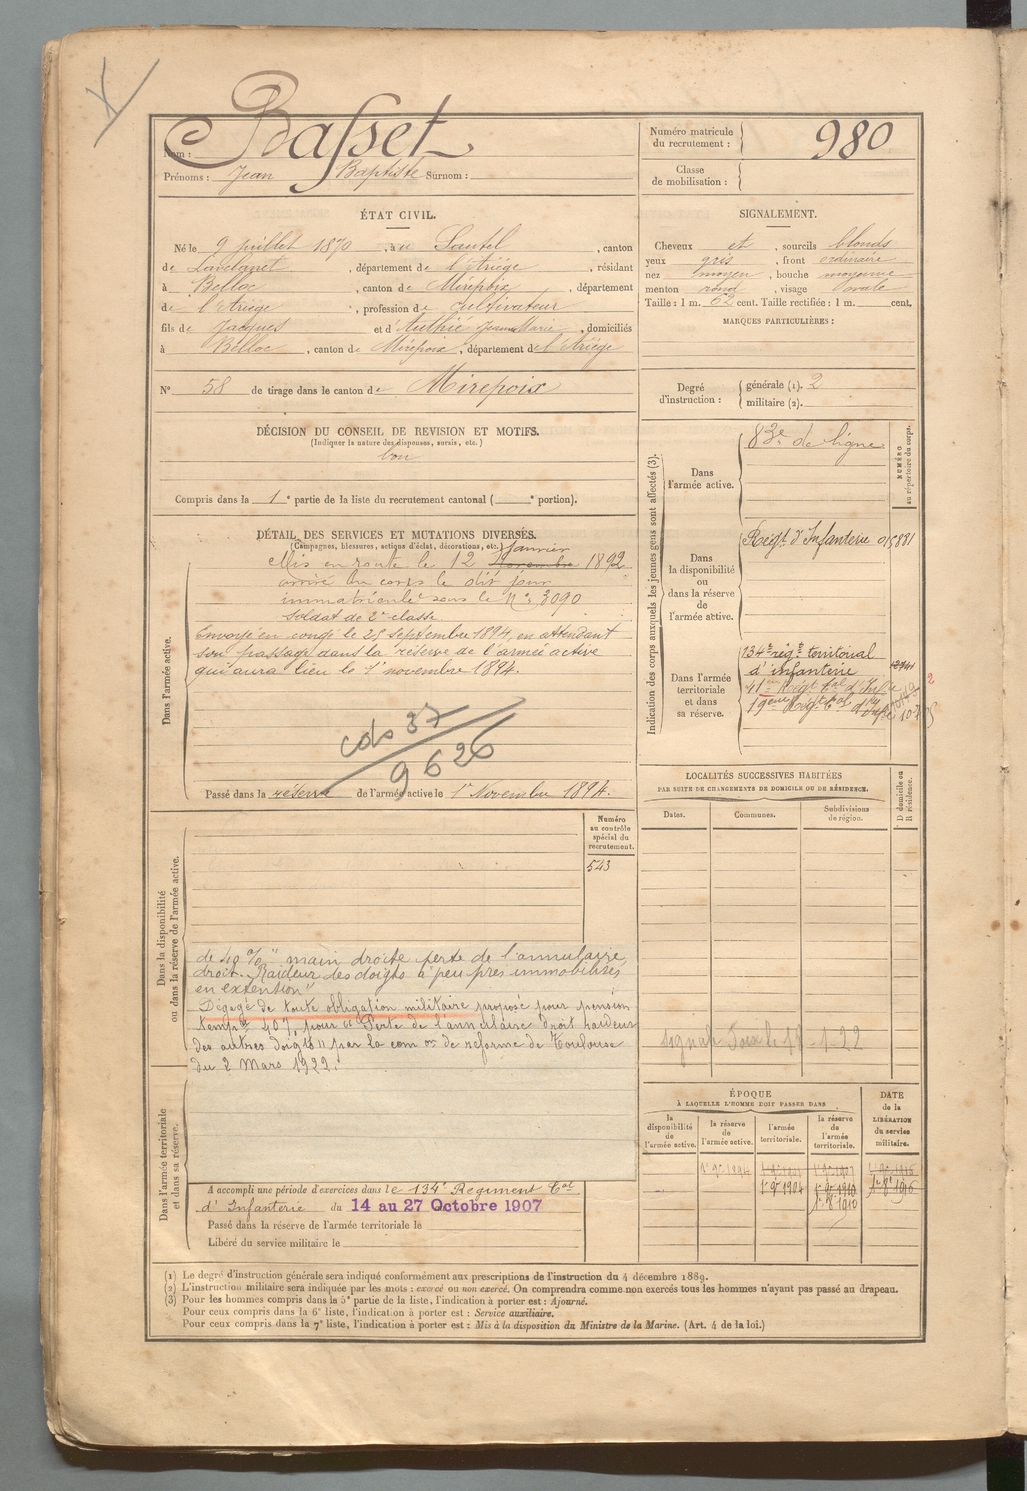 Basset
Nom :
Prénoms : Jean Baptiste Surnom :
Numéro matricule
du recrutement : 980
Classe
de mobilisation :
ÉTAT CIVIL.
Né le 9 juillet 1870, à u Sautel, canton
de Lavelanet, département de l'Ariège, résidant
à Belloc, canton de Mirepoix, département
de l'Ariège, profession de cultivateur
fils de Jacques et d'Authié Jeanne Marie, domiciliés
à Belloc, canton de Mirepoix, département de l'Ariège
N° 58 de tirage dans le canton de Mirepoix
SIGNALEMENT.
Cheveux et, sourcils blonds
yeux gris, front ordinaire
nez moyen, bouche moyenne
menton rond, visage ovale
Taille : 1 m. 62 cent. Taille rectifiée : 1 m. cent.
MARQUES PARTICULIÈRES :
Degré
d'instruction :
générale (1). 2
militaire (2).
DÉCISION DU CONSEIL DE REVISION ET MOTIFS.
(Indiquer la nature des dispenses, sursis, etc.)
bon
Compris dans la 1e partie de la liste du recrutement cantonal ( e portion).
DÉTAIL DES SERVICES ET MUTATIONS DIVERSES.
(Campagnes, blessures, actions d'éclat, décorations, etc.)
Dans l'armée active.
Janvier
Mis en route le 12 Novembre 1892
arrivé au corps le dit jour
immatriculé sous le n° 3090
Soldat de 2e classe
Envoyé en congé le 25 septembre 1894, en attendant
son passage dans la réserve de l'armée active
qui aura lieu le 1er novembre 1894.
9620
Passé dans la réserve de l'armée active le 1er Novembre 1894.
Indication des corps auxquels les jeunes gens sont affectés (3).
NUMÉRO
au répertoire du corps.
Dans
l'armée active.
83e de ligne
Dans
la disponibilité
ou
dans la réserve
de
l'armée active.
Régt d'Infanterie 015881
Dans l'armée
territoriale
et dans
sa réserve.
134e régt territorial
d'infanterie
2
LOCALITÉS SUCCESSIVES HABITÉES
PAR SUITE DE CHANGEMENTS DE DOMICILE OU DE RÉSIDENCE.
Dates.
Communes.
Subdivisions
de région.
D domicile ou
R résidence.
Numéro
au contrôle
spécial du
recrutement.
543
Dans la disponibilité
ou dans la réserve de l'armée active.
de 40 % " main droite perte de l'annulaire
droit. Raideur des doigts à peu près immobilisés
en extention"
Dégagé de toute obligation militaire proposé pour pension
tempre 40% pour "Perte de l'annulaire droit raideur
des autres doigts" par la comon de réforme de Toulouse
du 2 Mars 1922.
Dans l'armée territoriale
et dans sa réserve.
A accompli une période d'exercices dans le 134e Régiment tal
d'Infanterie du 14 au 27 Octobre 1907
Passé dans la réserve de l'armée territoriale le
Libéré du service militaire le
ÉPOQUE
À LAQUELLE L'HOMME DOIT PASSER DANS
la
disponibilité
de
l'armée active.
la réserve
de
l'armée active.
l'armée
territoriale.
la réserve
de
l'armée
territoriale.
DATE
de la
LIBÉRATION
du service
militaire.
(1) Le degré d'instruction générale sera indiqué conformément aux prescriptions de l'instruction du 4 décembre 1889.
(2) L'instruction militaire sera indiquée par les mots : exercé ou non exercé. On comprendra comme non exercés tous les hommes n'ayant pas passé au drapeau.
(3) Pour les hommes compris dans la 5e partie de la liste, l'indication à porter est : Ajourné.
Pour ceux compris dans la 6e liste, l'indication à porter est : Service auxiliaire.
Pour ceux compris dans la 7e liste, l'indication à porter est : Mis à la disposition du Ministre de la Marine. (Art. 4 de la loi.)